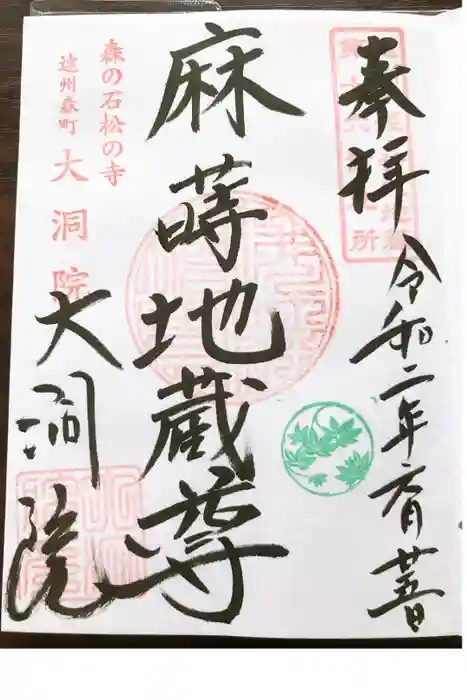 奉拝
令和二年六月廿五日
麻蒔地蔵尊
森の石松の寺
遠州森町 大洞院
大洞院